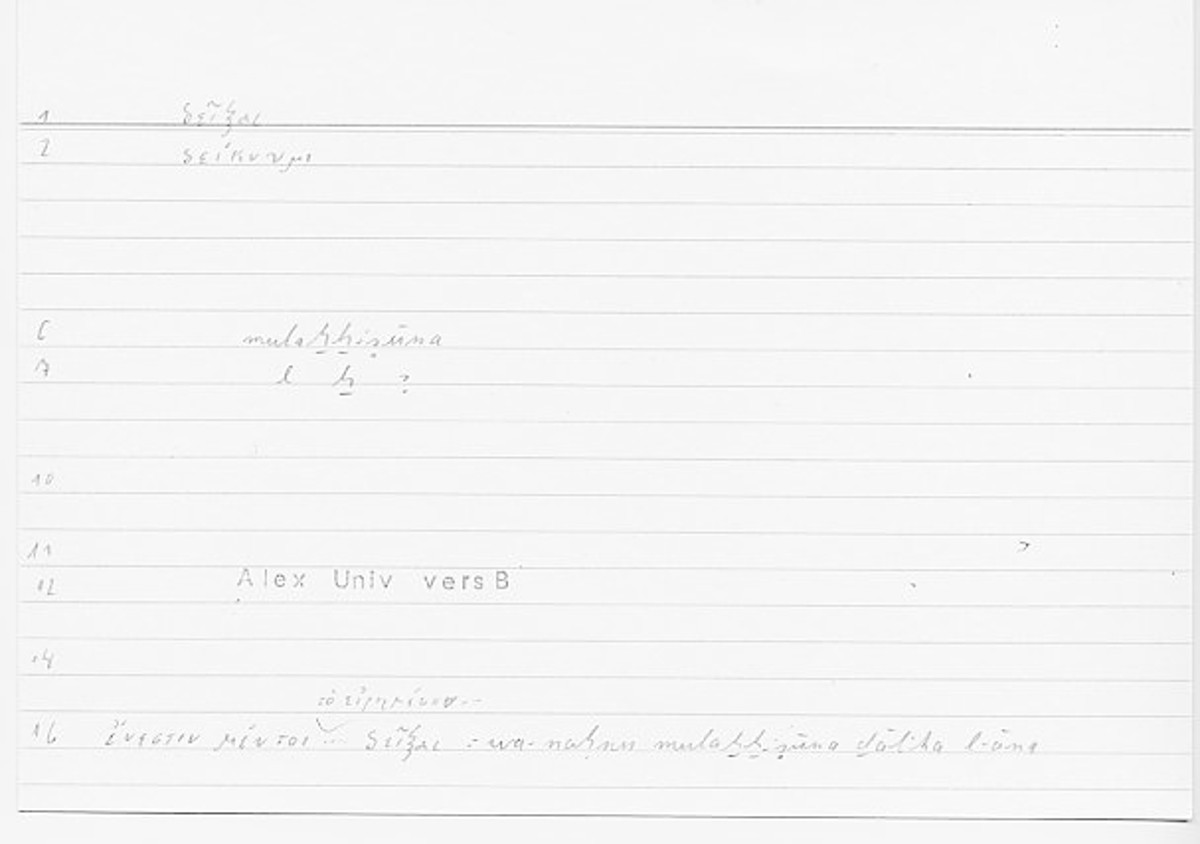 1 δεῖξαι
2 δείκνυμι
6 mulaḫḫiṣūna
7 l ḫ ṣ
10
11
12 Alex Univ vers B
14
τὸ εἰρημένον
16 ἔνεστιν μέντοι ... δεῖξαι = wa-naḥnu mulaḫḫiṣūna ḏālika l-āna